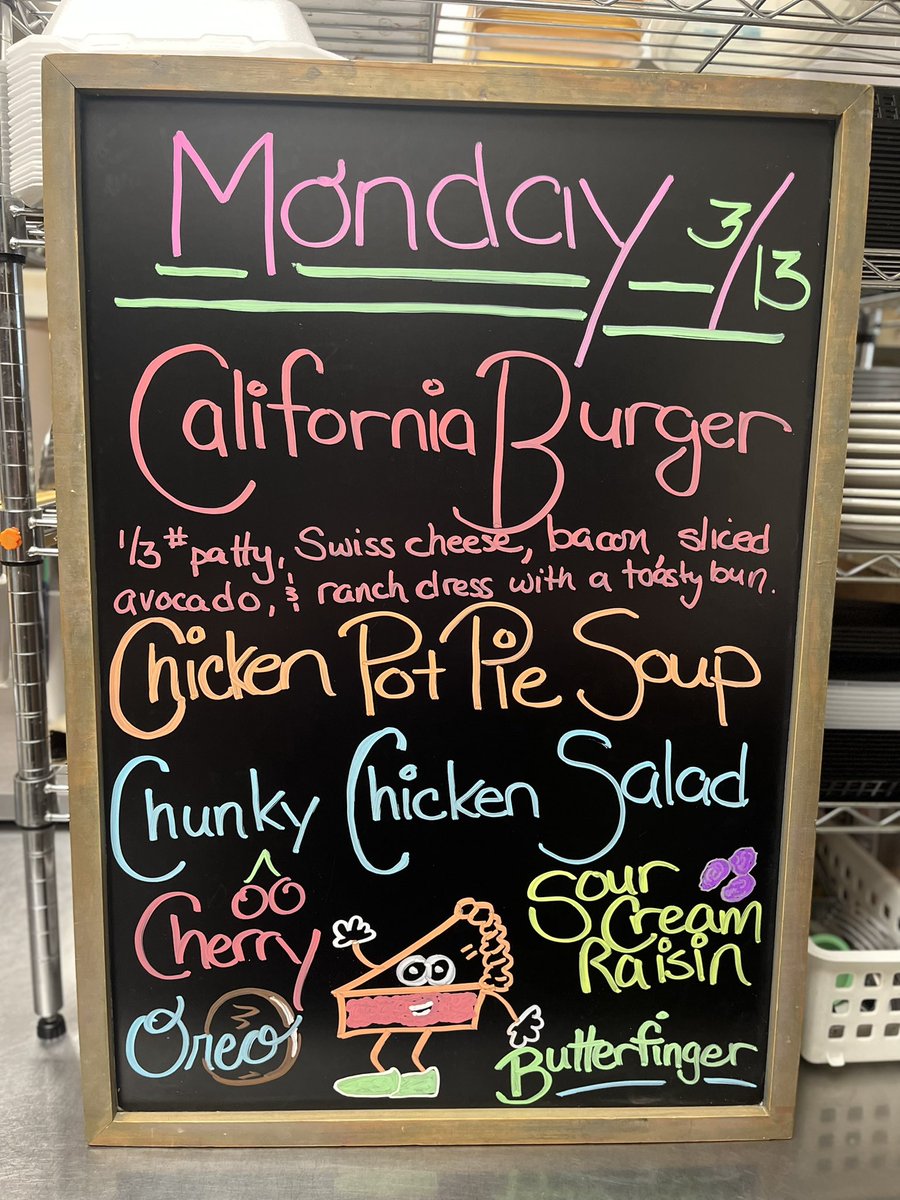 Monday 3/13
California Burger
1/3# patty, Swiss cheese, bacon, sliced
avocado, & ranch dress with a toasty bun.
Chicken Pot Pie Soup
Chunky Chicken Salad
Cherry
Sour
Cream
Raisin
Oreo
Butterfinger